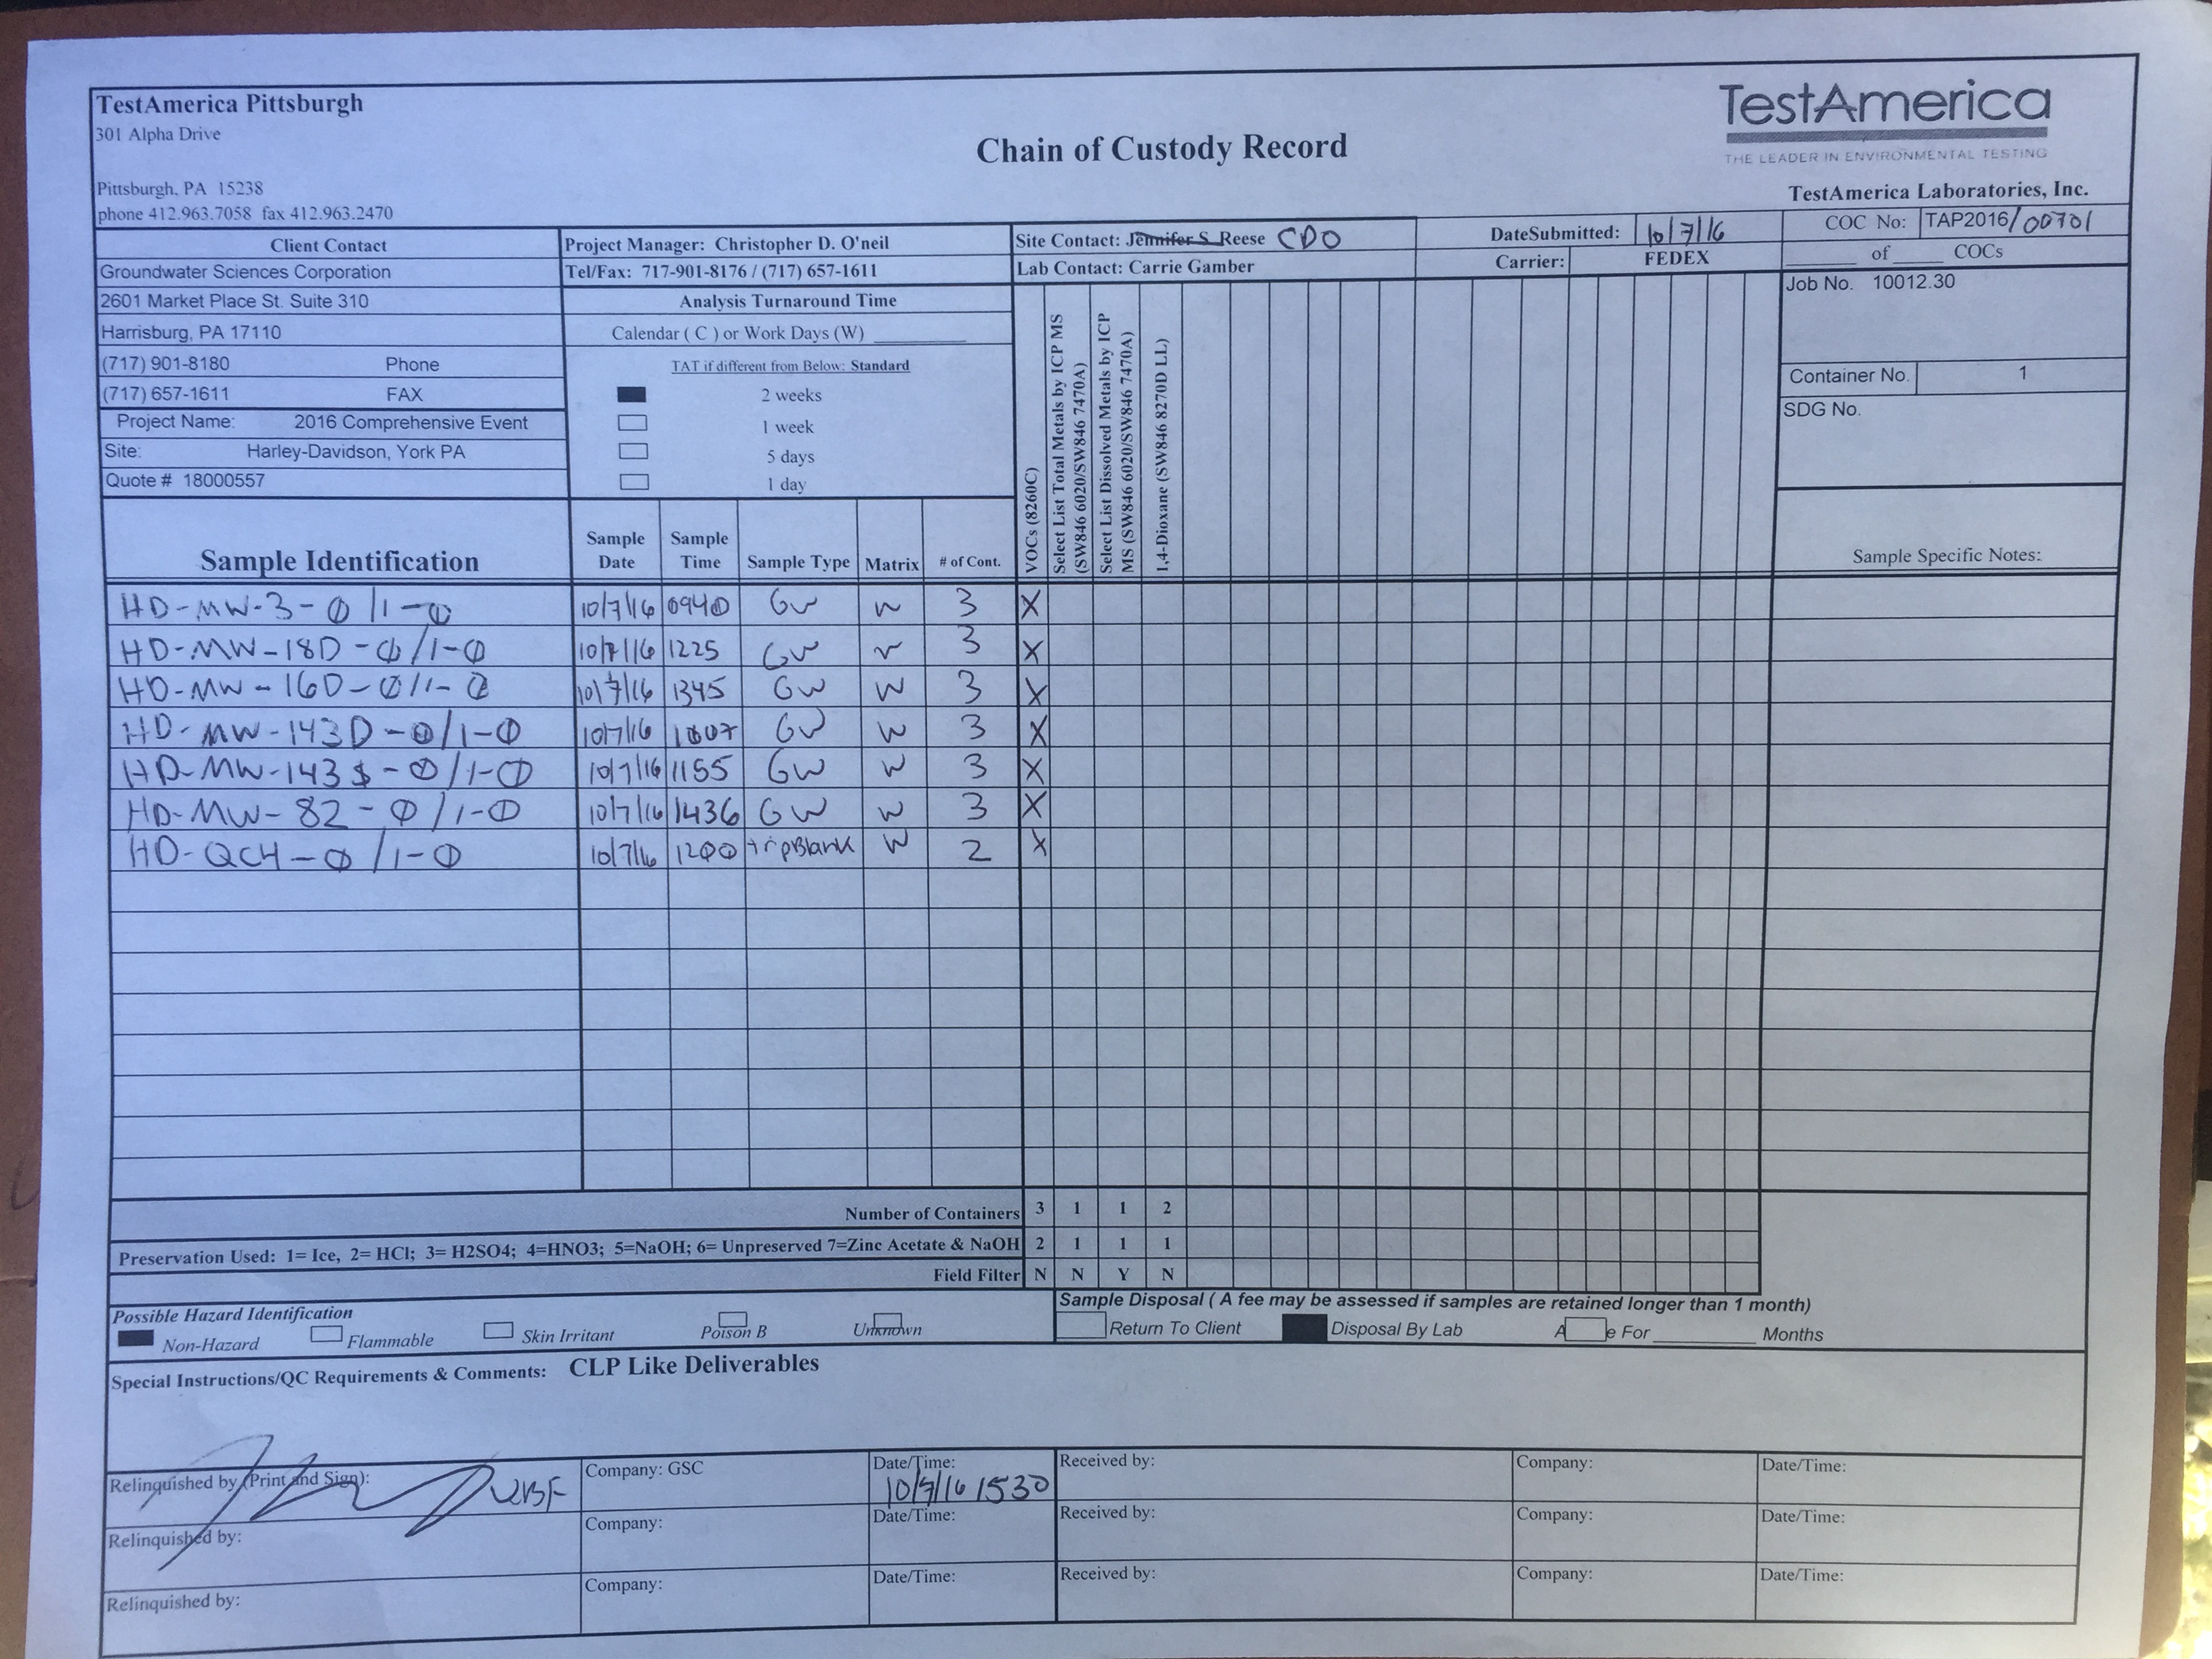 TestAmerica Pittsburgh
301 Alpha Drive
Pittsburgh, PA 15238
phone 412.963.7058 fax 412.963.2470
Chain of Custody Record
TestAmerica
THE LEADER IN ENVIRONMENTAL TESTING
TestAmerica Laboratories, Inc.
Client Contact
Groundwater Sciences Corporation
2601 Market Place St. Suite 310
Harrisburg, PA 17110
(717) 901-8180 Phone
(717) 657-1611 FAX
Project Name: 2016 Comprehensive Event
Site: Harley-Davidson, York PA
Quote # 18000557
Project Manager: Christopher D. O'neil
Tel/Fax: 717-901-8176 / (717) 657-1611
Analysis Turnaround Time
Calendar ( C ) or Work Days (W)
TAT if different from Below: Standard
2 weeks
1 week
5 days
1 day
Site Contact: Jennifer S. Reese CDO
Lab Contact: Carrie Gamber
DateSubmitted: 10/7/16
Carrier: FEDEX
COC No: TAP2016/00701
of COCs
Job No. 10012.30
Container No. 1
SDG No.
Sample Identification
Sample Date
Sample Time
Sample Type
Matrix
# of Cont.
VOCs (8260C)
Select List Total Metals by ICP MS
(SW846 6020/SW846 7470A)
Select List Dissolved Metals by ICP
MS (SW846 6020/SW846 7470A)
1,4-Dioxane (SW846 8270D LL)
Sample Specific Notes:
HD-MW-3-0/1-0 10/7/16 0940 GW W 3 X
HD-MW-18D-0/1-0 10/7/16 1225 GW W 3 X
HD-MW-16D-0/1-0 10/7/16 1345 GW W 3 X
HD-MW-143D-0/1-0 10/7/16 1007 GW W 3 X
HD-MW-143S-0/1-0 10/7/16 1155 GW W 3 X
HD-MW-82-0/1-0 10/7/16 1436 GW W 3 X
HD-QC4-0/1-0 10/7/16 1200 tripBlank W 2 X
Number of Containers 3 1 1 2
Preservation Used: 1= Ice, 2= HCl; 3= H2SO4; 4=HNO3; 5=NaOH; 6= Unpreserved 7=Zinc Acetate & NaOH 2 1 1 1
Field Filter N N Y N
Possible Hazard Identification
Non-Hazard Flammable Skin Irritant Poison B Unknown
Sample Disposal ( A fee may be assessed if samples are retained longer than 1 month)
Return To Client Disposal By Lab A e For Months
Special Instructions/QC Requirements & Comments: CLP Like Deliverables
Relinquished by (Print and Sign): Company: GSC Date/Time: 10/7/16 1530 Received by: Company: Date/Time:
Relinquished by: Company: Date/Time: Received by: Company: Date/Time:
Relinquished by: Company: Date/Time: Received by: Company: Date/Time: